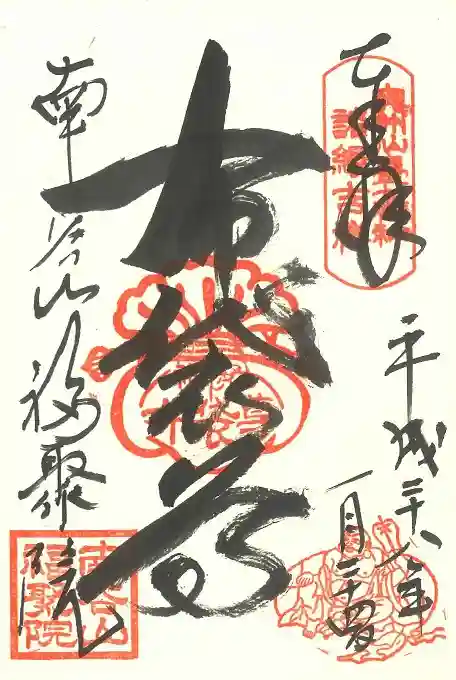 奉拝
平成二十八年
一月二十四日
布袋尊
南谷山福聚院
南谷山
福聚院